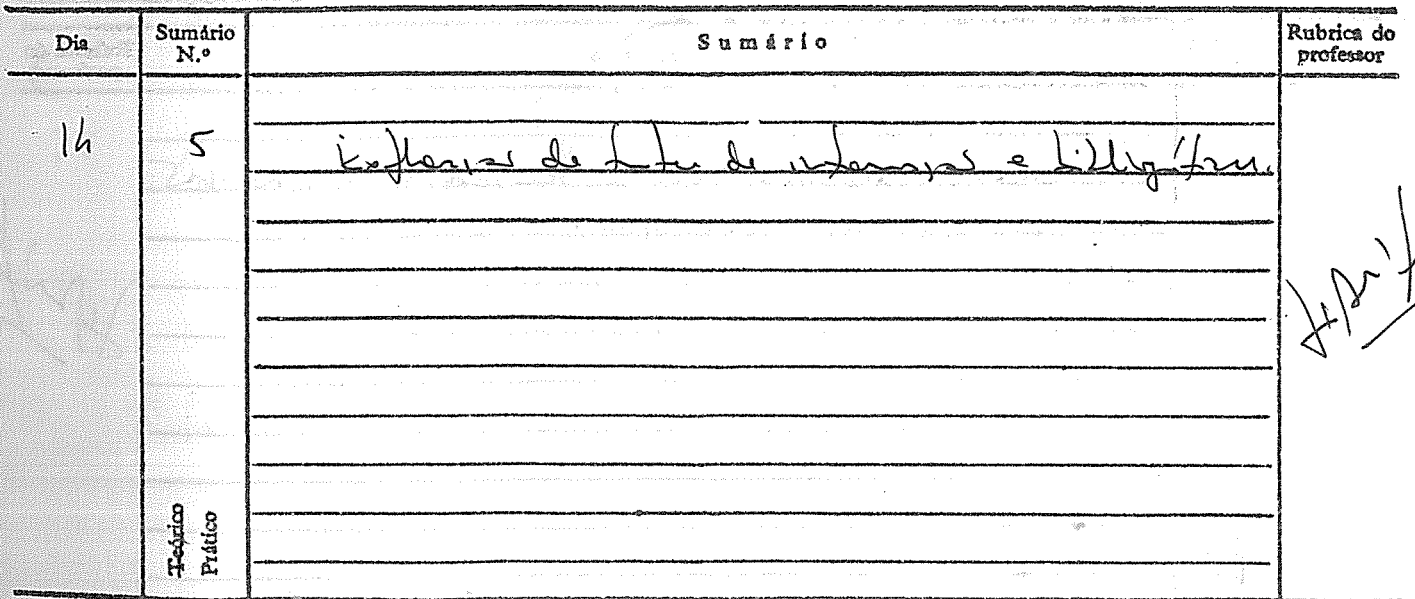 Dia
Sumário N.º
Sumário
Rubrica do professor
14
5
de de informação e bibliográfica.
Teórico
Prático